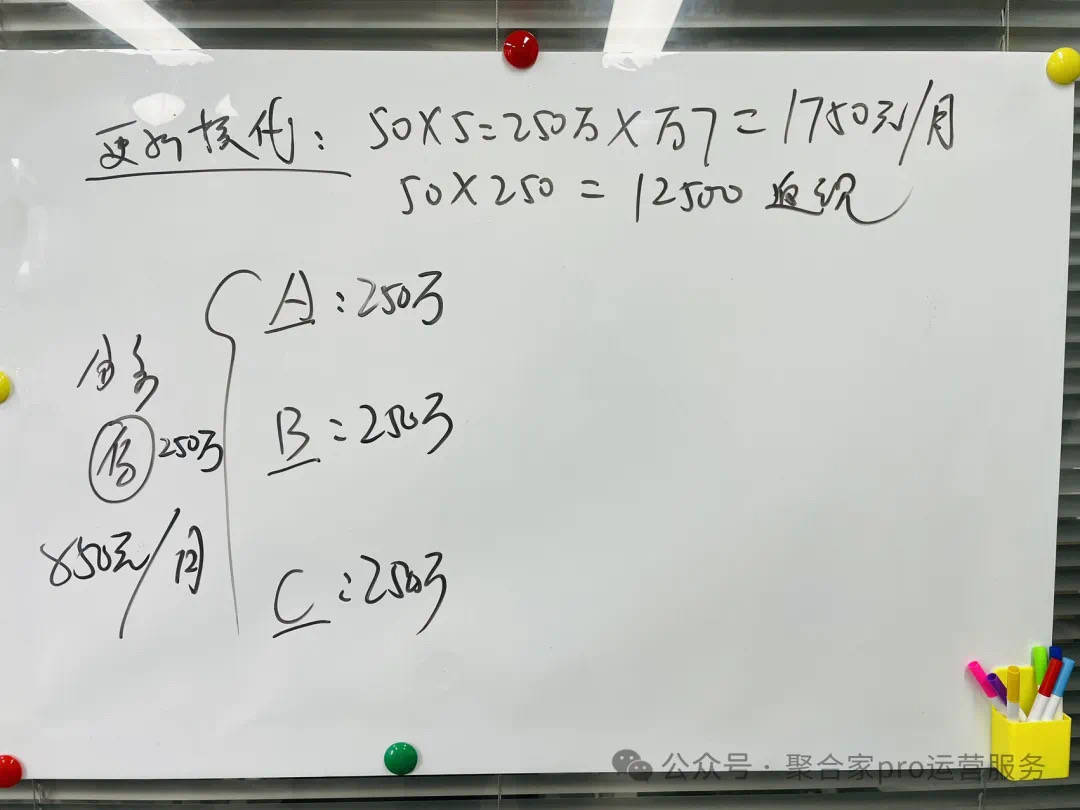 更新换代: 50×5=250万×万7=1750元/月
50×250=12500 返现
A:250万
B:250万
250万
850元/月
C:250万
公众号·聚合家pro运营服务